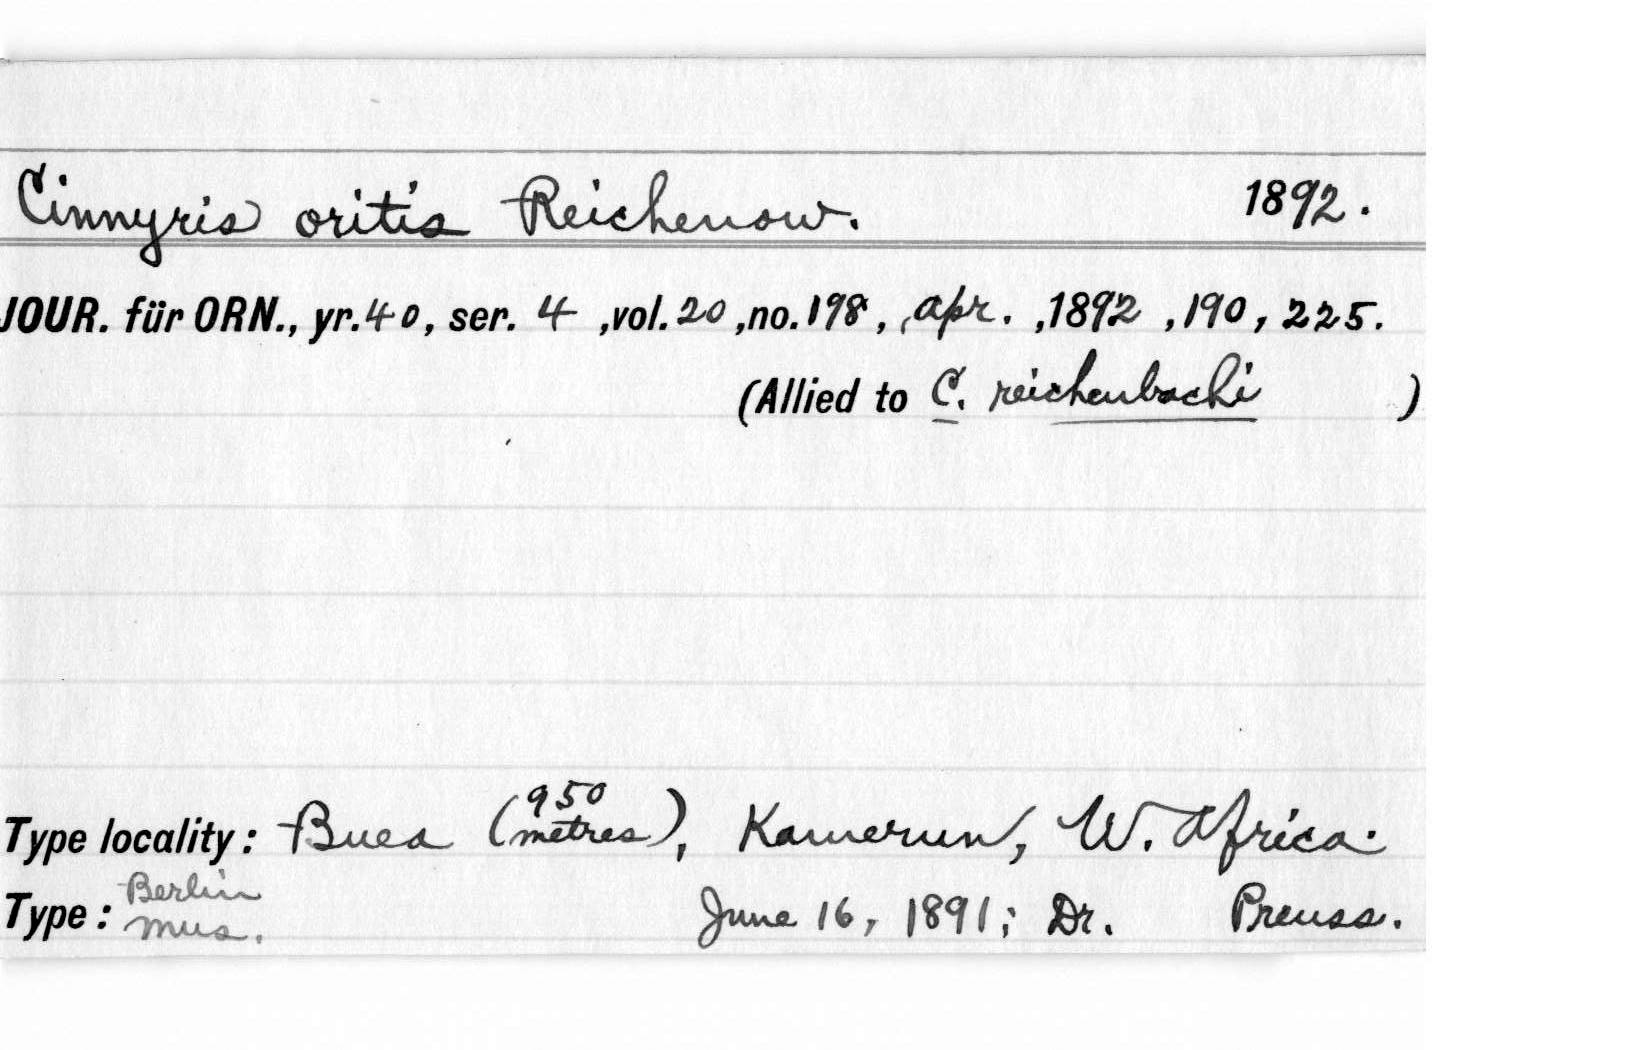 Cinnyris oritis Reichenow. 1892.
JOUR. für ORN., yr.40, ser. 4 ,vol. 20 ,no. 198, ,Apr. ,1892 ,190, 225.
(Allied to C. reichenbachi )
Type locality: Buea (950 metres), Kamerun, W. Africa.
Type: Berlin Mus. June 16, 1891; Dr. Preuss.